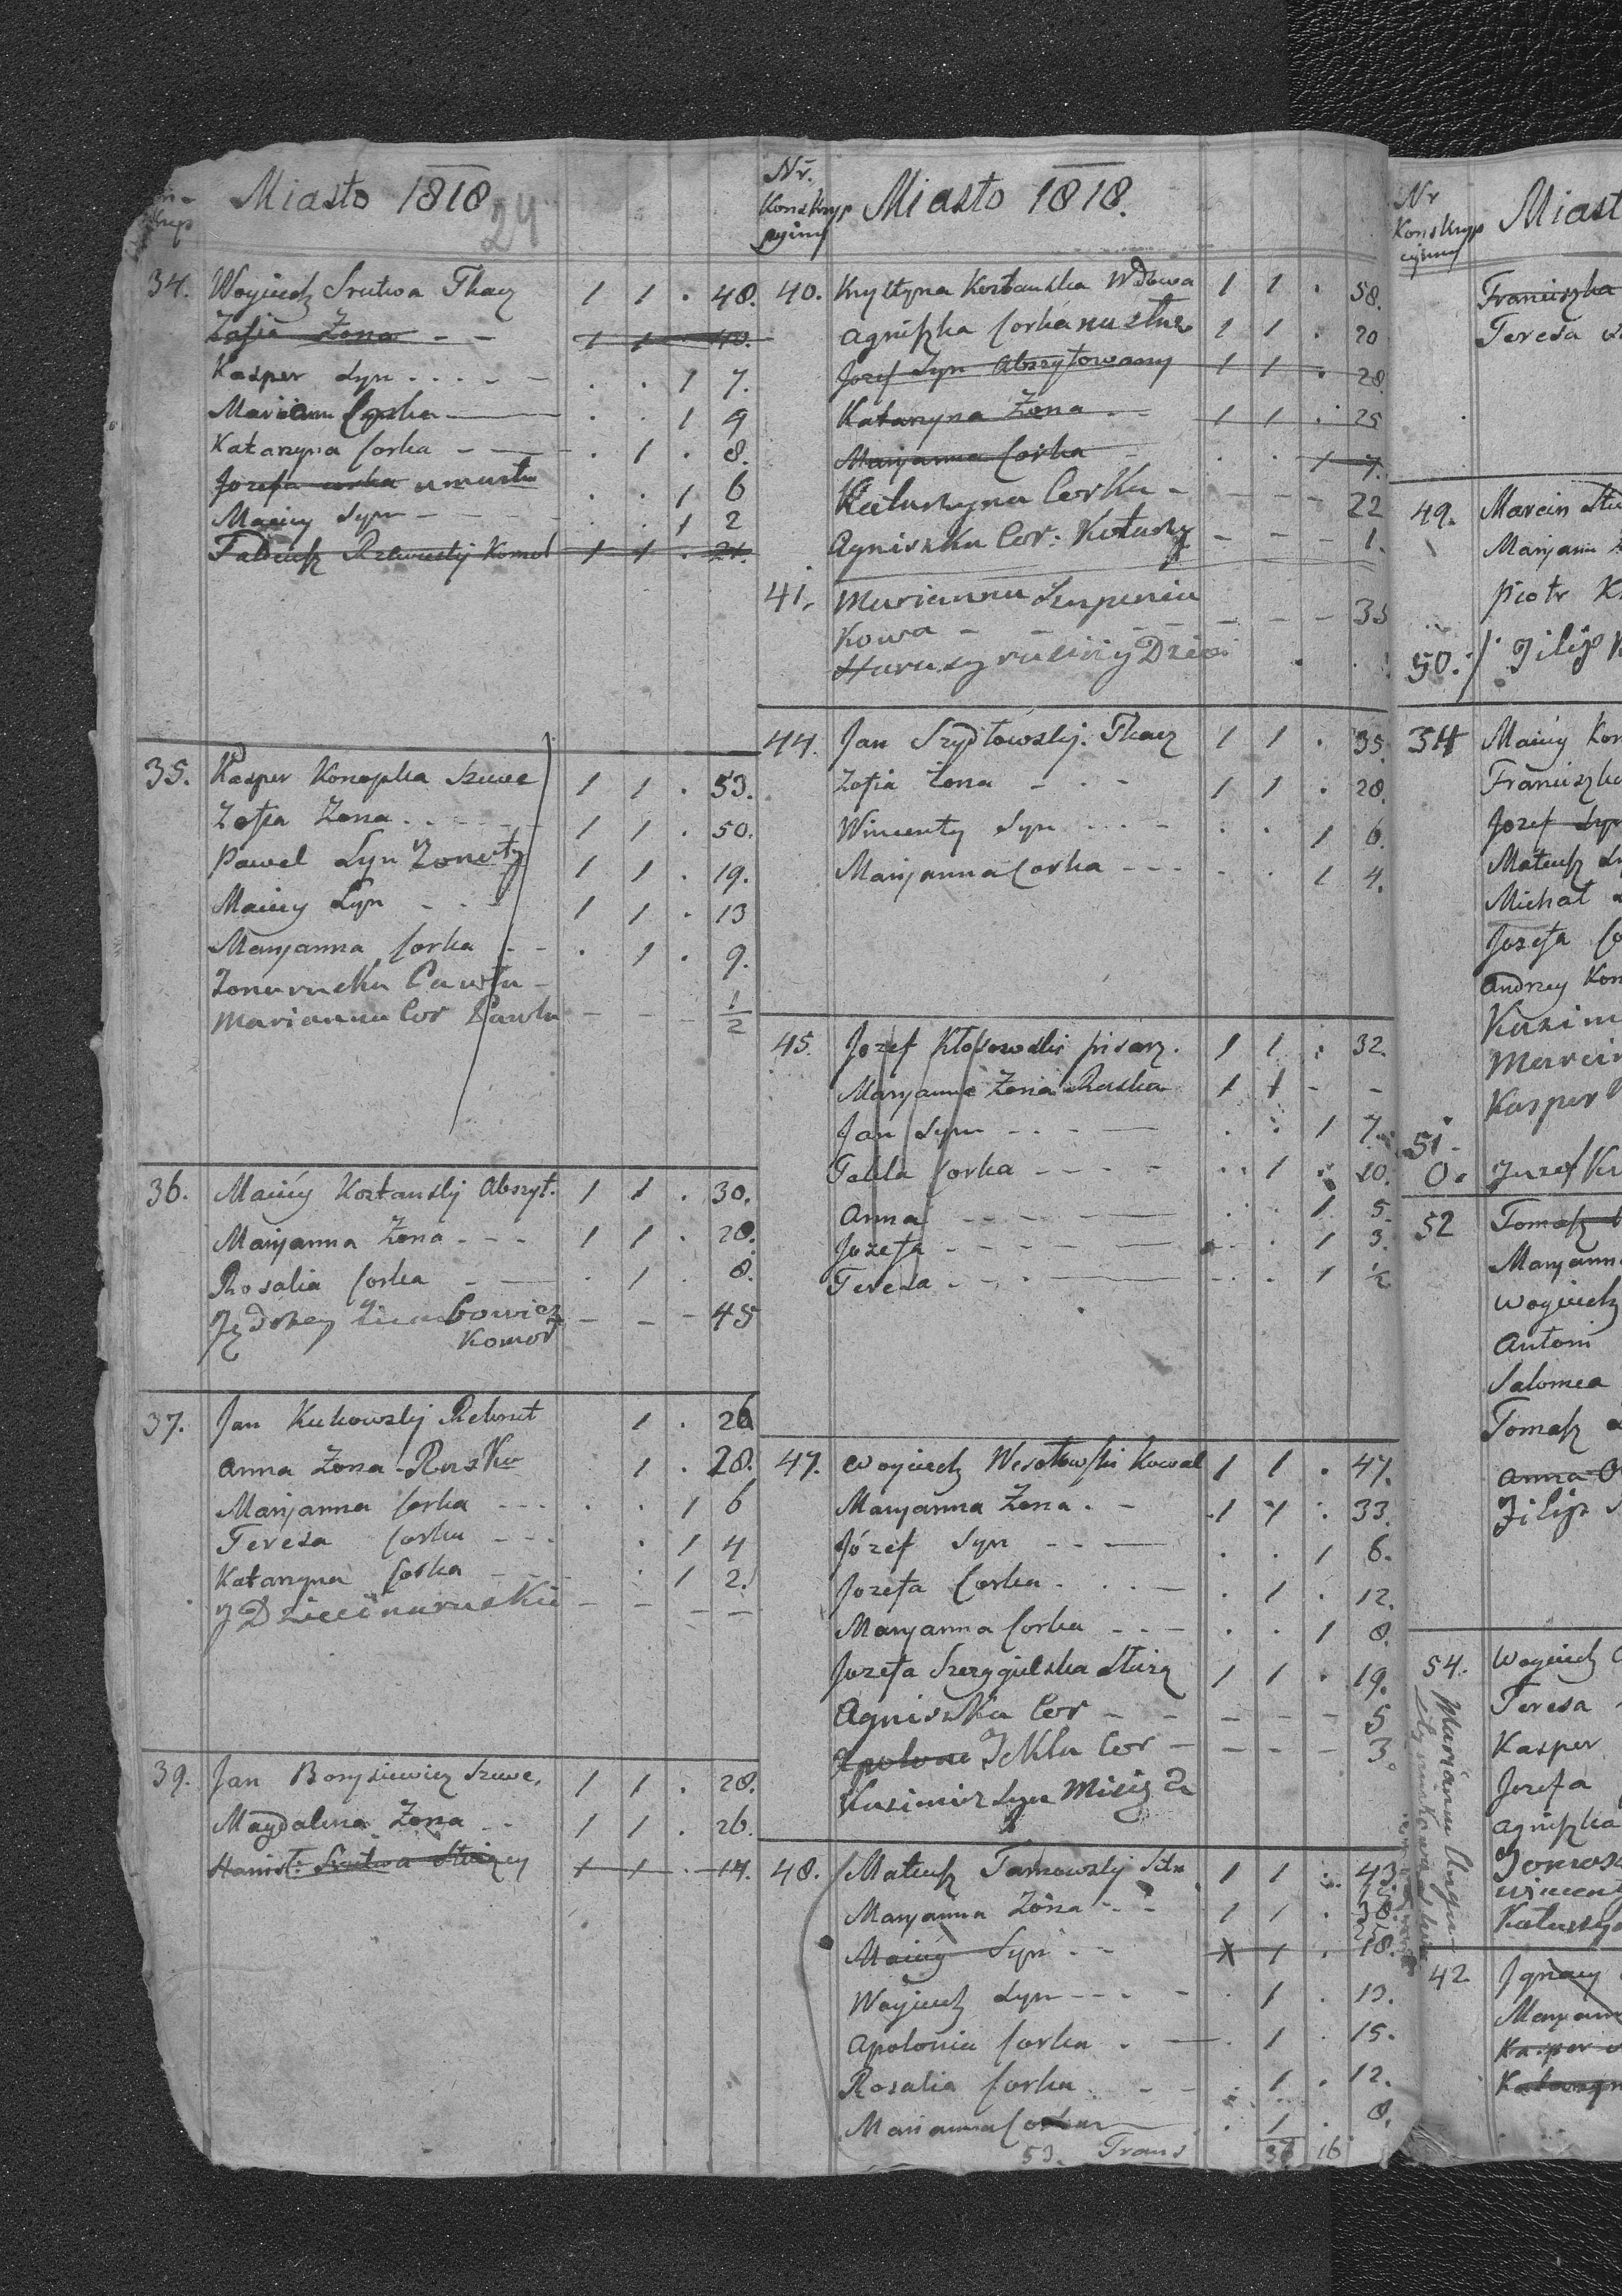 Miasto 1818
24
34. Woyciech Srutwa Tkacz 1 1 . 48.
Zofia Zona - - 1 1 . 40.
Kasper Syn . . . . - . . 1 7.
Mariann Corka . . 1 9
Katarzyna Corka - - . 1 . 8.
Jozefa corka umarła . . 1 6
Maciey Syn - - - . . 1 2
Tadeusz Komor 1 1 . 21.
35. Kasper Konopka Szewc 1 1 . 53.
Zofia Zona . . - - 1 1 . 50.
Pawel Syn Zonaty 1 1 . 19.
Maciey Syn - - - 1 1 . 13
Maryanna Corka - - . 1 . 9.
Zona ruska Pawła -
Marianna Cor Pawła - - - 1/2
36. Maciey Kozłanskij Abszyt. 1 1 . 30.
Maryanna Zona - - - 1 1 . 28.
Rosalia Corka - - . 1 . 8.
Jędrzey - - - 45
Komor
37. Jan Kukowskij Rekrut 1 . 26
Anna Zona - Ruska . 1 . 28.
Maryanna Corka - - - . . 1 6
Teresa Corka - - - . 1 4
Katarzyna Corka - - . 1 2.
y Dzieci na ruskie - - - -
39. Jan Borysiewicz Szewc. 1 1 . 28.
Magdalena Zona - - 1 1 . 26.
Stanisł: Srutwa Służący 1 1 . 14.
Nr.
Konskryp
cyiny
Miasto 1818.
40. Krystyna Kozłanska Wdowa 1 1 . 58.
Agniszka Corka na służ 1 1 . 20
Jozef Syn Abszytowany 1 1 . 28
Katarzyna Zona - - 1 1 . 25
Maryanna Corka - . . 1 7.
Katarzyna Corka - - - - - 22
Agniszka Cor: Katarzy - - - 1.
41. Marianna
kowa - - - - - 35
ruscii y Dzieci
44. Jan Szydłowskij. Tkacz 1 1 . 35.
Zofia Zona - - - 1 1 . 28.
Wincenty Syn - - - - . . 1 6.
Maryanna Corka - - - . . 1 4.
45. Jozef Kłossowski pisarz. 1 1 : 32.
Maryanna Zona Ruska 1 1 - -
Jan Syn - - - . . 1 7.
Tekla Corka - - - - . 1 . 10.
Anna - - - - . . 1 5.
Jozefa - - - - - . . 1 3.
Teresa - - - . . 1 1/2
47. Woyciech Wesołowski Kowal 1 1 . 47.
Maryanna Zona . - 1 1 . 33.
Józef Syn - - - . . 1 6.
Jozefa Corka . . . - . 1 . 12.
Maryanna Corka - - - . . 1 8.
Jozefa Szczygielska Służą 1 1 . 19.
Agniszka Cor - - - - - 5
Apolonia Tekla Cor - - - - 3
Kazimirz Syn Miesią 2
48. Mateusz Tarnowskij 1 1 . 43.
Maryanna Zona - - 1 1 . 38.
Maciey Syn - - X 1 . 18.
Woyciech Syn - - - - . 1 . 13.
Apolonia Corka . - . 1 . 15.
Rosalia Corka - - . 1 . 12.
Marianna Corka . 1 . 8.
53. Trans 36 16
Nr
Konskryp
cyiny
Miast
Franciszka
Teresa
49. Marcin
Maryann
Piotr
50. Filip
34 Maciey Kon
Franciszka
Jozef Syn
Mateusz
Michał
Jozefa Co
Andrzey Kon
Kazim
Marcin
Kasper
51.
0. Juzef
52 Tomasz
Maryanna
Woyciech
Antoni
Salomea
Tomasz
Anna
Filip
54. Woyciech
Teresa
Kasper
Jozefa
Agniszka
Wincent
Katarzyn
Marianna
42. Ignacy
Maryann
Kasper
Katarzyn